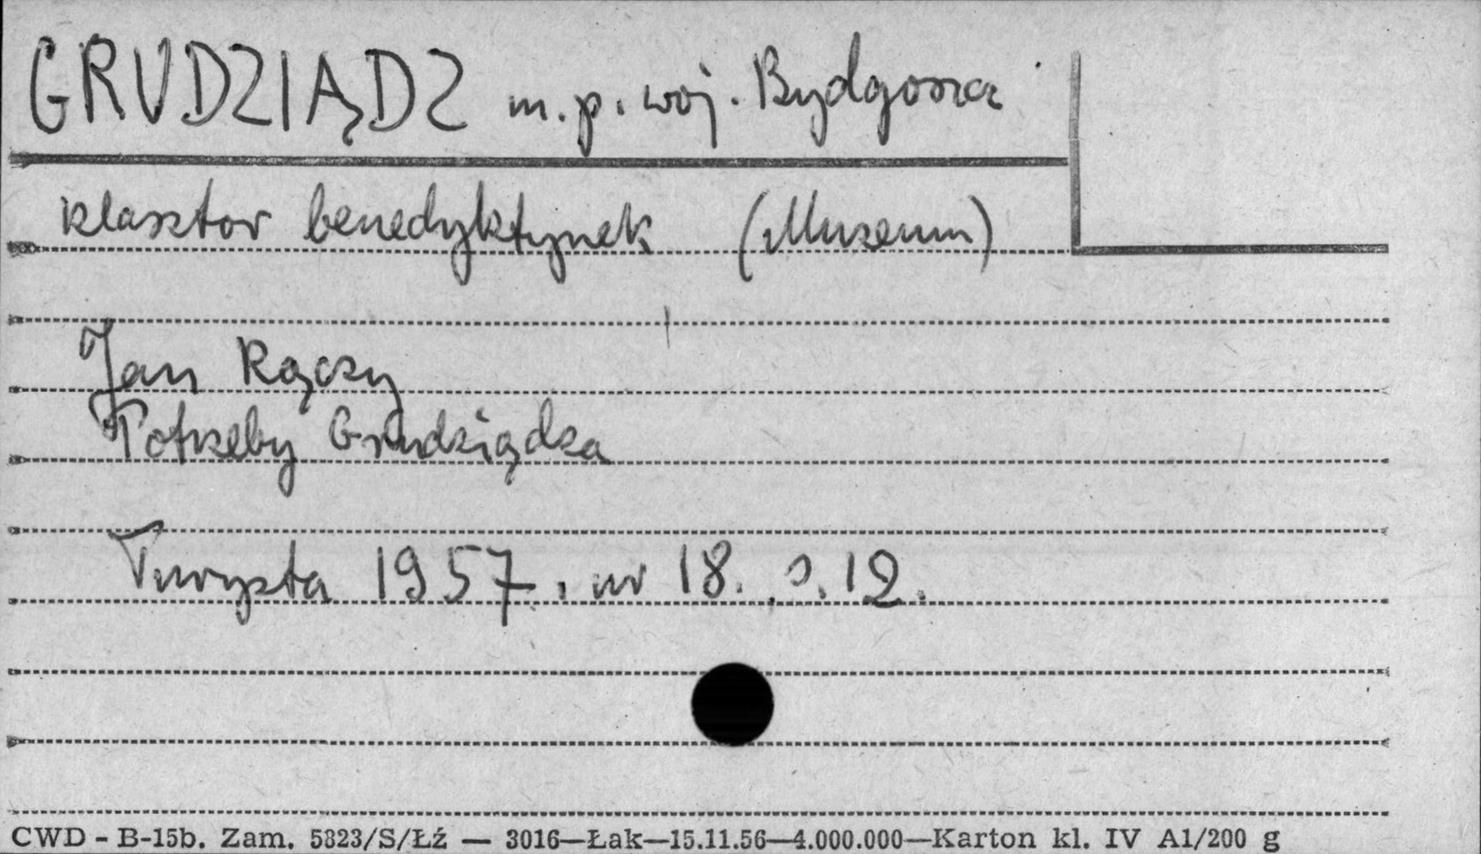 GRUDZIĄDZ m. p. woj. Bydgoszcz
klasztor benedyktynek (Muzeum)
Jan Rączy
Potrzeby Grudziądza
Turysta 1957. nr 18. s. 12.
CWD - B-15b. Zam. 5823/S/Łź — 3016—Łak—15.11.56—4.000.000—Karton kl. IV A1/200 g